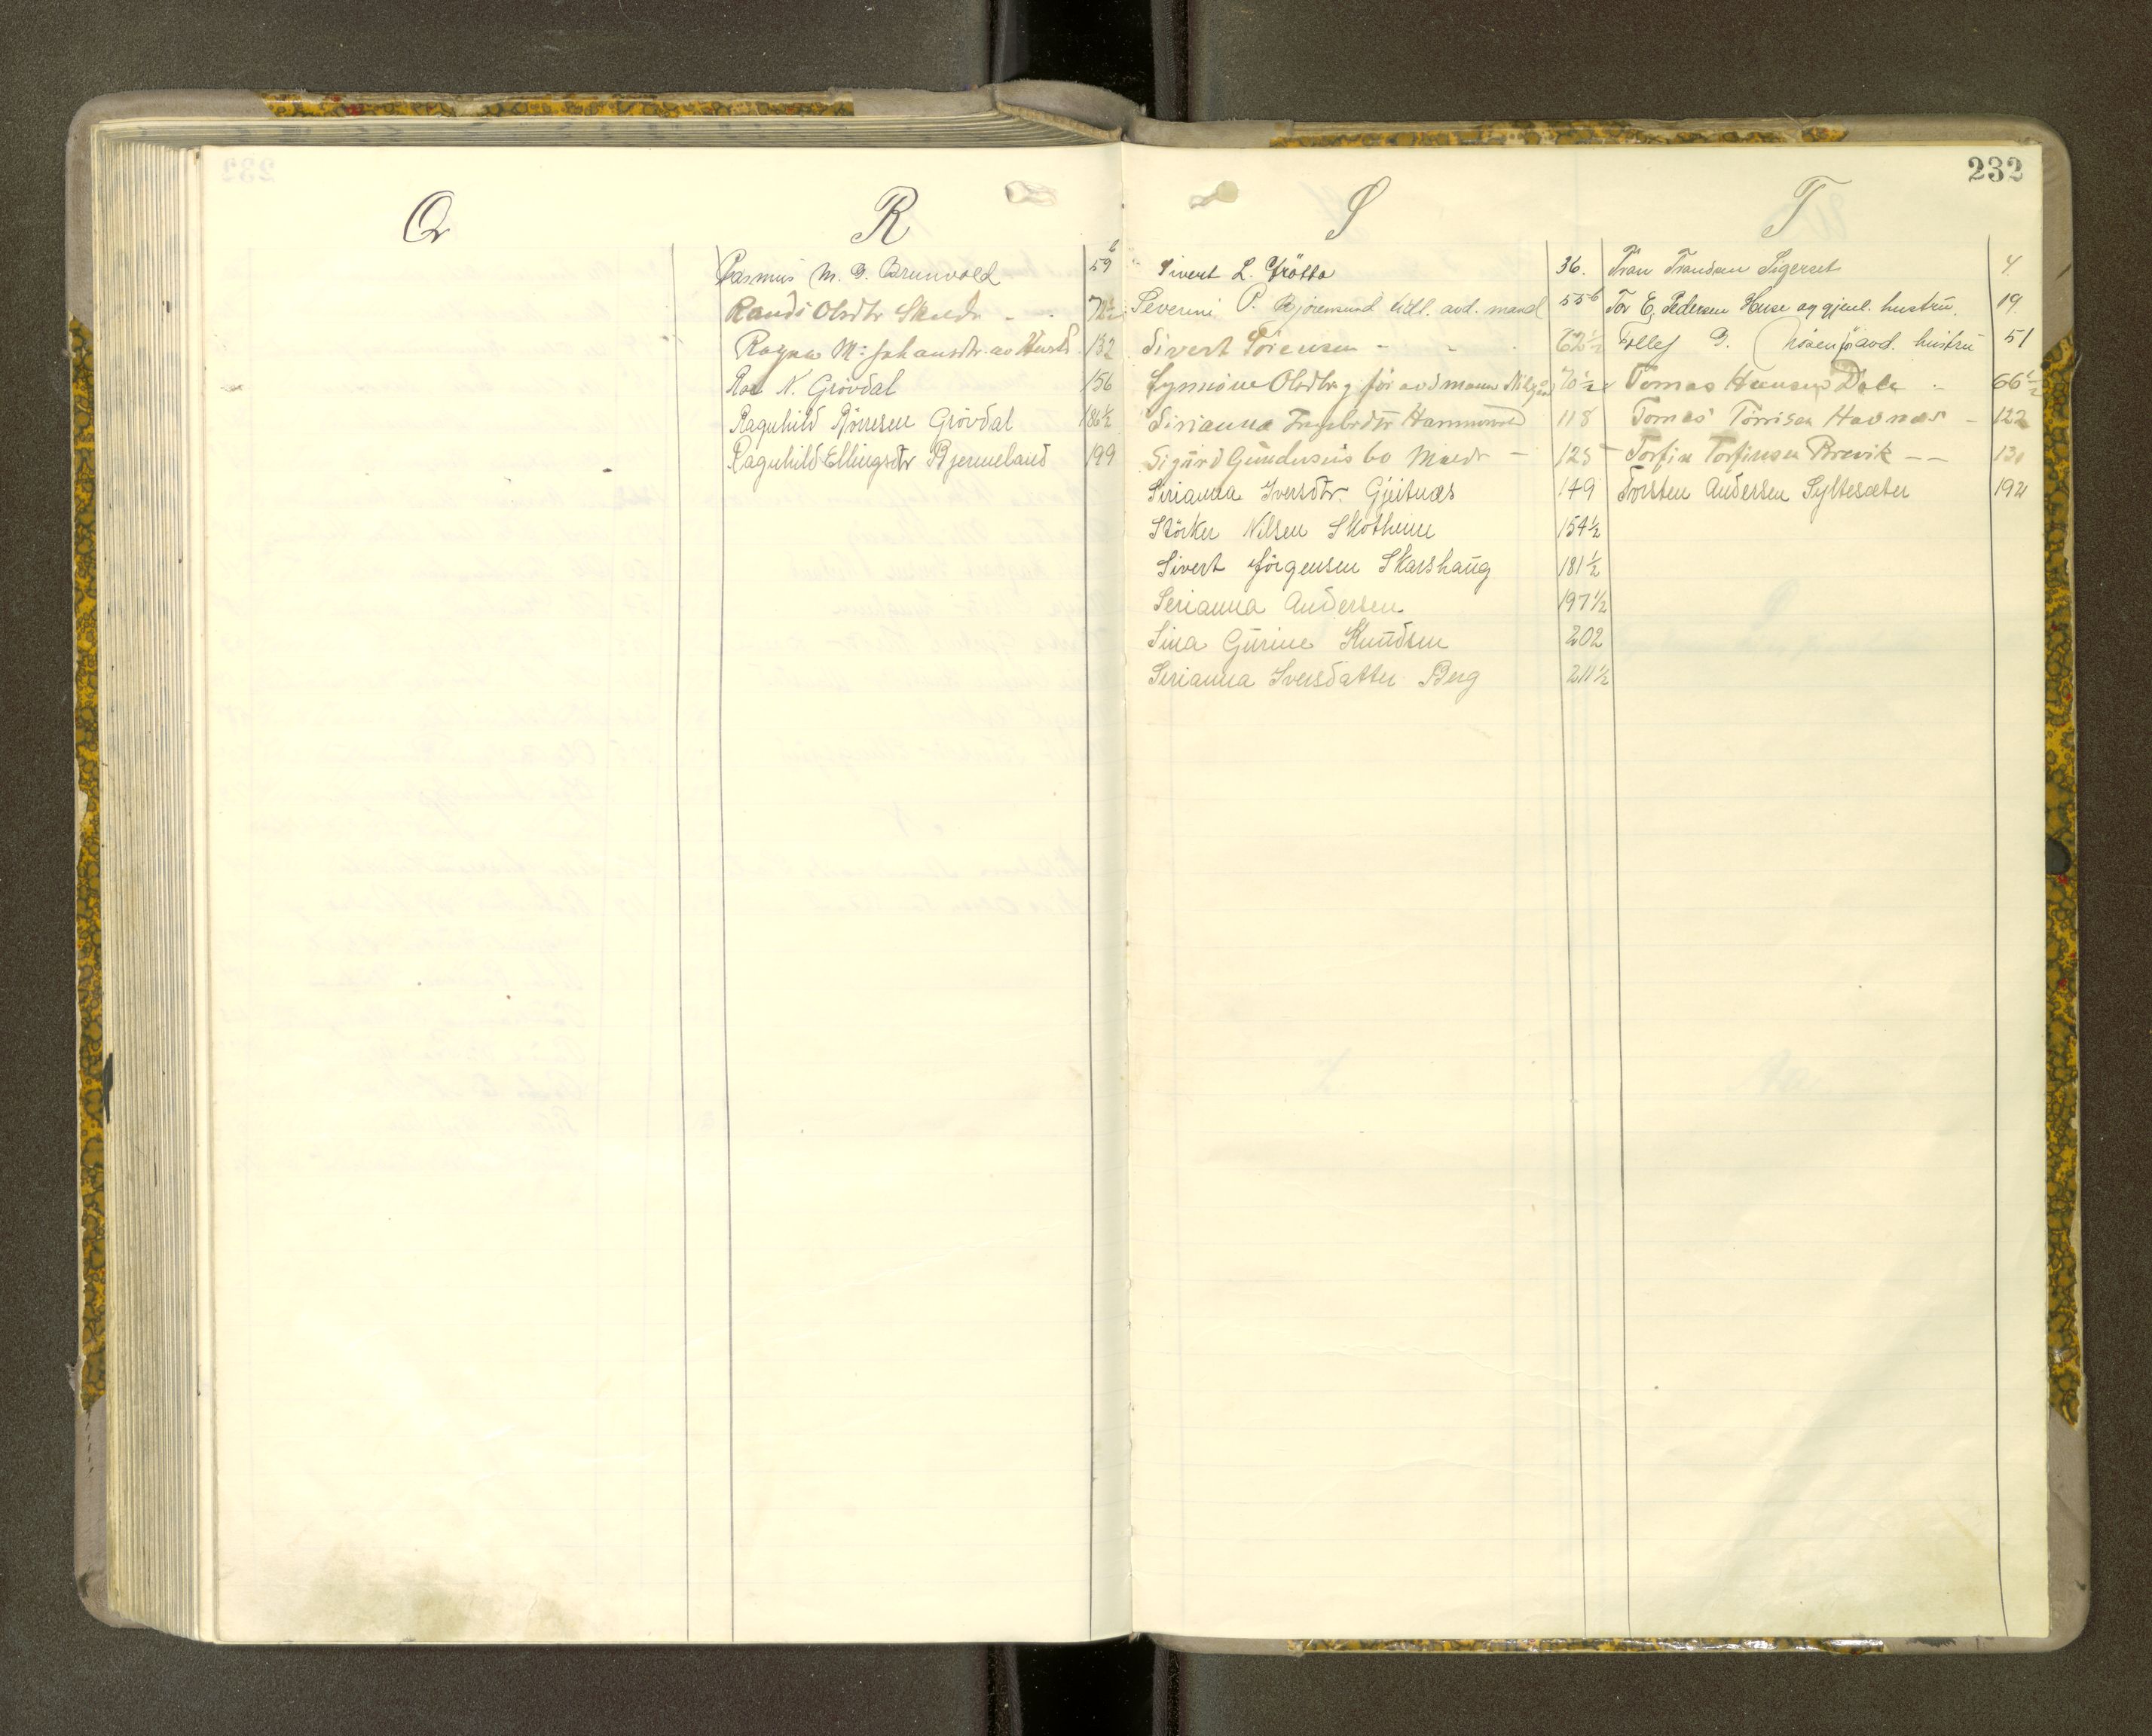 232
Q
R
Rasmus M. G. Brunvold 59 b
Randi Olsdtr Skeedr - . 72½
Ragna M: Johansdtr. av 132
Roa N. Grövdal 156
Ragnhild Pedersen Grövdal 186½
Ragnhild Ellingsdtr Bjermeland 199
S
Sivert L. Frötta 36.
Severini P. Bjoremund tidl. avd. mand 55 b
Sivert Sörensen - - . 62½
Synnöve Olsdtr g. för avd mann 70½
Sirianna Hammervold 118
Sigurd Gundersens bo - 125
Sirianna Iversdtr. Gjeitnæs 149
Störker Nilsen Skotheim 154½
Sivert Jörgensen Skarshaug 181½
Serianna Andersen 197½
Sina Gurine Knudsen 202
Serianna Iversdatter Berg 211½
T
Tran Trandsen Sigerset 4
Tor E. Pedersen Huse og gjenl. hustru. 19
Tollef G. avd. hustru 51
Tomas Hansen Dale . 66½
Tomas Törrisen Havnæs - 122
Torfin Torfinsen Brevik - - 130
Torsten Andersen Syltesæter 192